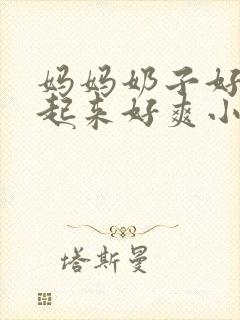 妈妈奶子好
起来好爽小
塔斯曼